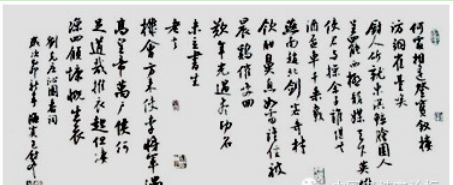 何處相逢登寶釵樓
訪銅雀臺喚
廚人斫就東溟鯨膾圉人
呈罷西極龍媒天下英雄
使君與操餘子誰堪共
酒杯車千乘載
燕南趙北劍客奇才
飲酣鼓如雷誰信被
晨雞輕喚回
歎年光過盡功名
未立書生
老去
機會方來使李將軍遇
高皇帝萬戶侯何
足道哉披衣起但淒
涼四顧慷慨生哀
劉克莊沁園春詞
歲次